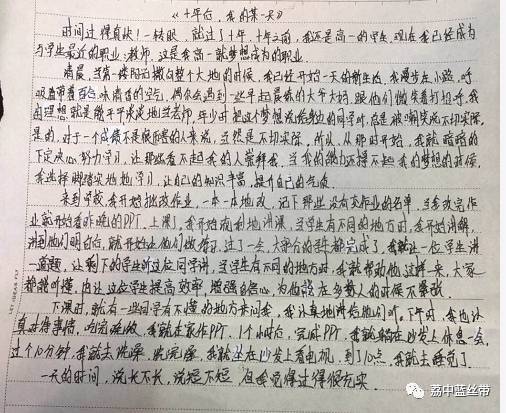 《十年后,我的某一天》
时间过得真快!一转眼,就过了十年,十年之前,我还是高一的学生,现在我已经成为
与学生最近的职业:教师,这是我高一就梦想成为的职业。
清晨,当第一缕阳光撒向整个大地的时候,我已经开始一天的新生活,我漫步在小路,呼
吸着带着百花味清香的空气,偶尔会遇到一些早起晨练的大爷大妈,跟他们微笑着打招呼,我
的理想就是能平平淡淡地当老师,年少时把这个梦想说给身边的同学听,总是被嘲笑成不切实际,
是的,对于一个成绩不是很面善的人来说,当然是不切实际,所以,从那时开始,我就暗暗的
下定决心,努力学习,让那些看不起我的人崇拜我,当我的能力还撑不起我的梦想的时候,
我选择脚踏实地地学习,让自己的知识丰富,提升自己的气质。
来到学校,我开始批改作业,一本一本地改,记下那些没交作业的名单,当我改完作
业就开始看昨晚的PPT,上课了,我开始有利地讲课,当学生有不同的地方时,我开始讲解,
讲到他们明白,就开始让他们做练习,过了一会,大部分的都完成了,我就让一位学生讲
一道题,让剩下的学生听这位同学讲,当学生有不同的地方时,我就帮助他,这样一来,大家
都能听懂,也让这位学生提高效率,增强自信心,为他能在多数人的时候不紧张。
下课时,就有一些同学有不懂的地方来问我,我认真地讲给他们听。下午时,我也认
真对待事情,吃完晚饭,我就在家作PPT,1个小时后,完成PPT,我就躺在沙发上休息一会,
过个10分钟,我就去洗澡,洗完澡,我就坐在沙发上看电视,到了10点,我就去睡觉了。
一天的时间,说长不长,说短不短,但我觉得过得很充实。
荔中蓝丝带